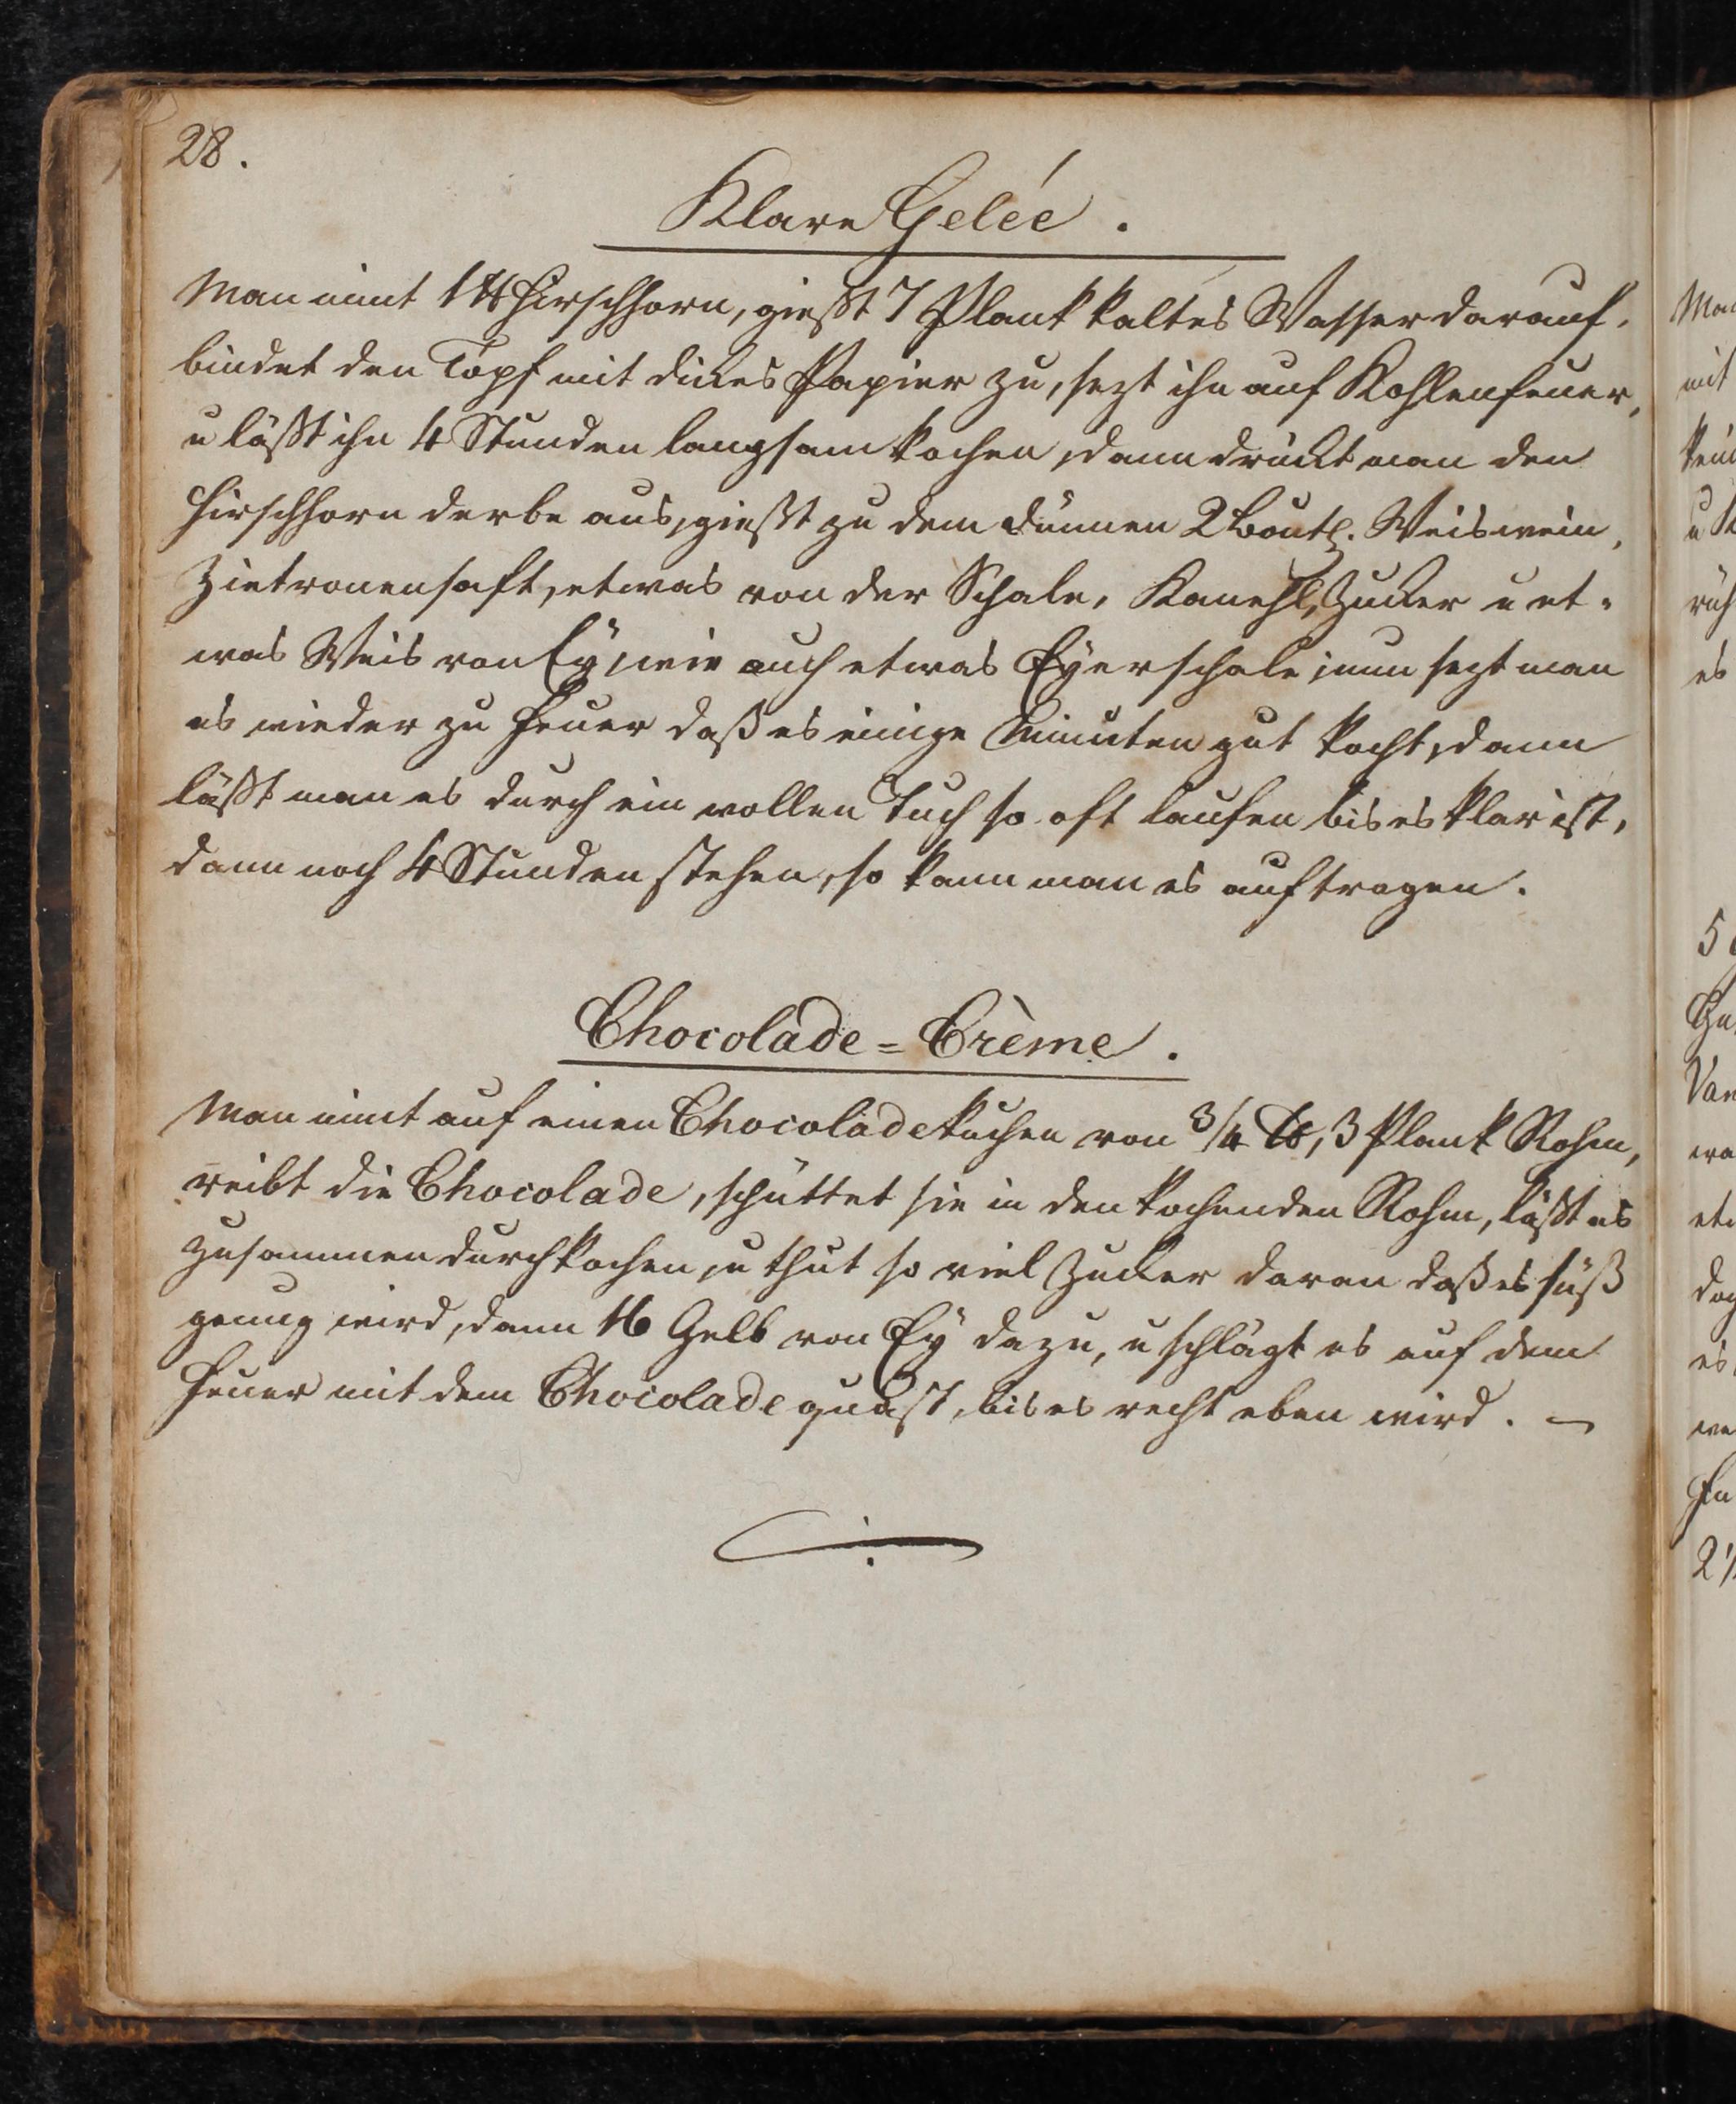 28.
Klare Gelée.
Man nimt 1 ℔ Hirschhorn, gießt 7 Plank kaltes Wasser darauf,
bindet den Topf mit dickes Papier zu, sezt ihn auf Kohlenfeuer,
u läßt ihn 4 Stunden langsam kochen, dann drückt man den
Hirschhorn derbe aus, gießt zu dem dünnen 2 Boutl. Weiswein,
Zietronensaft, etwas von der Schale, Kanehl, Zucker u et=
was Weis von Ey, wie auch etwas Eyerschale; nun sezt man
es wieder zu Feuer daß es einige Minuten gut kocht, dann
läßt man es durch ein wollen Tuch so oft laufen bis es klar ist,
dann noch 4 Stunden stehen, so kann man es auftragen.
Chocolade=Crème.
Man nimt auf einen Chocoladekuchen von 3/4 ℔, 3 Plank Rohm,
reibt die Chocolade, schüttet sie in den kochenden Rohm, läßt es
zusammen durchkochen, u thut so viel Zucker daran daß es süß
genug wird, dann 16 Gelb von Ey dazu, u schlägt es auf dem
Feuer mit dem Chocolade quast, bis es recht eben wird. —